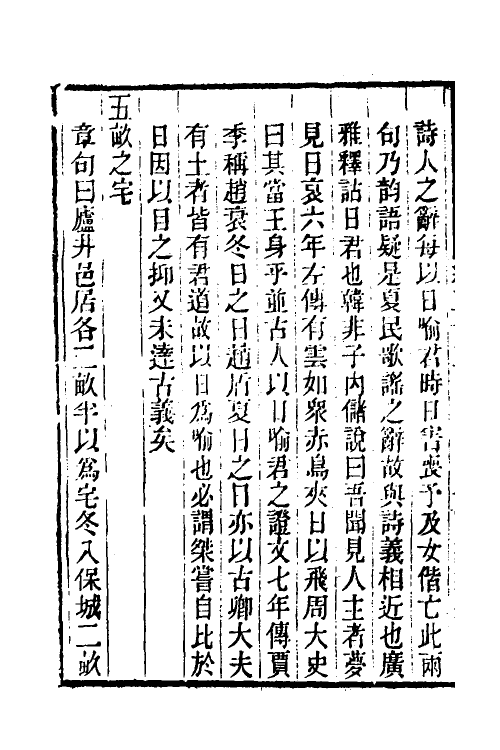 詩人之辭每以日喻君時日害喪予及女偕亡此兩
句乃韵語疑是夏民歌謠之辭故與詩義相近也廣
雅釋詁日君也韓非子內儲說曰吾聞見人主者夢
見日哀六年左傳有雲如衆赤鳥夾日以飛周大史
曰其當王身乎並古人以日喻君之證文七年傳賈
季稱趙衰冬日之日趙盾夏日之日亦以古卿大夫
有土者皆有君道故以日爲喻也必謂桀嘗自比於
日因以目之抑又未達古義矣
五畝之宅
章句曰廬井邑居各二畝半以爲宅冬入保城二畝